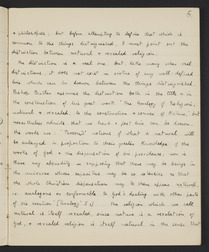 & philosophies. But before attempting to define that which is
common to the things distinguished, I must point out the
distinction between natural & revealed religion.
The distinction is a real one. But, like many other real
distinctions, it does not exist in virtue of any well defined
line which can be drawn between the things distinguished.
Bishop Butler assumes the distinction both in the title & in
the construction of his great work "The Analogy of Religion,
natural & revealed, to the constitution & course of Nature", but
nevertheless admits that we have & past this in
the words are: "Persons' notions of what is natural will
be enlarged in proportion to their greater knowledge of the
works of God & the dispensations of his providence. Nor is
there any absurdity in supposing that there may be beings in
the universe whose capacities may be so extensive as that
the whole Christian dispensation may to them appear natural,
ie analogous or conformable to God's dealing with other parts
of his creation (Analogy I.i)". The religion which we call
natural is itself revealed, since nature is a revelation of
God, & revealed religion is itself natural in the sense that